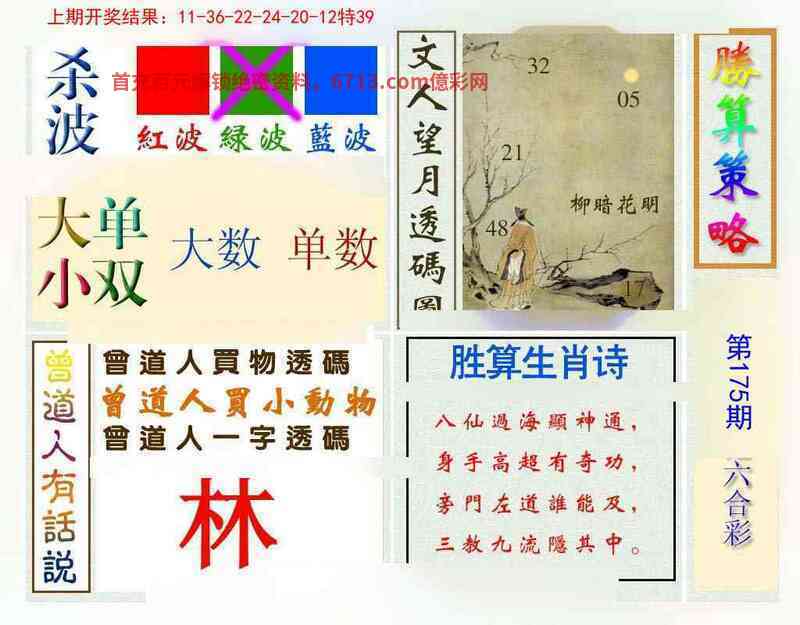 上期开奖结果：11-36-22-24-20-12特39
杀波
首充百元解锁绝密资料，6713.com億彩网
紅波 緑波 藍波
大单小双
大数 单数
文人望月透碼圖
32
05
21
柳暗花明
48
17
勝算策略
曾道人有話説
曾道人買物透碼
曾道人買小動物
曾道人一字透碼
林
胜算生肖诗
八仙過海顯神通，
身手高超有奇功，
旁門左道誰能及，
三教九流隱其中。
第175期
六合彩